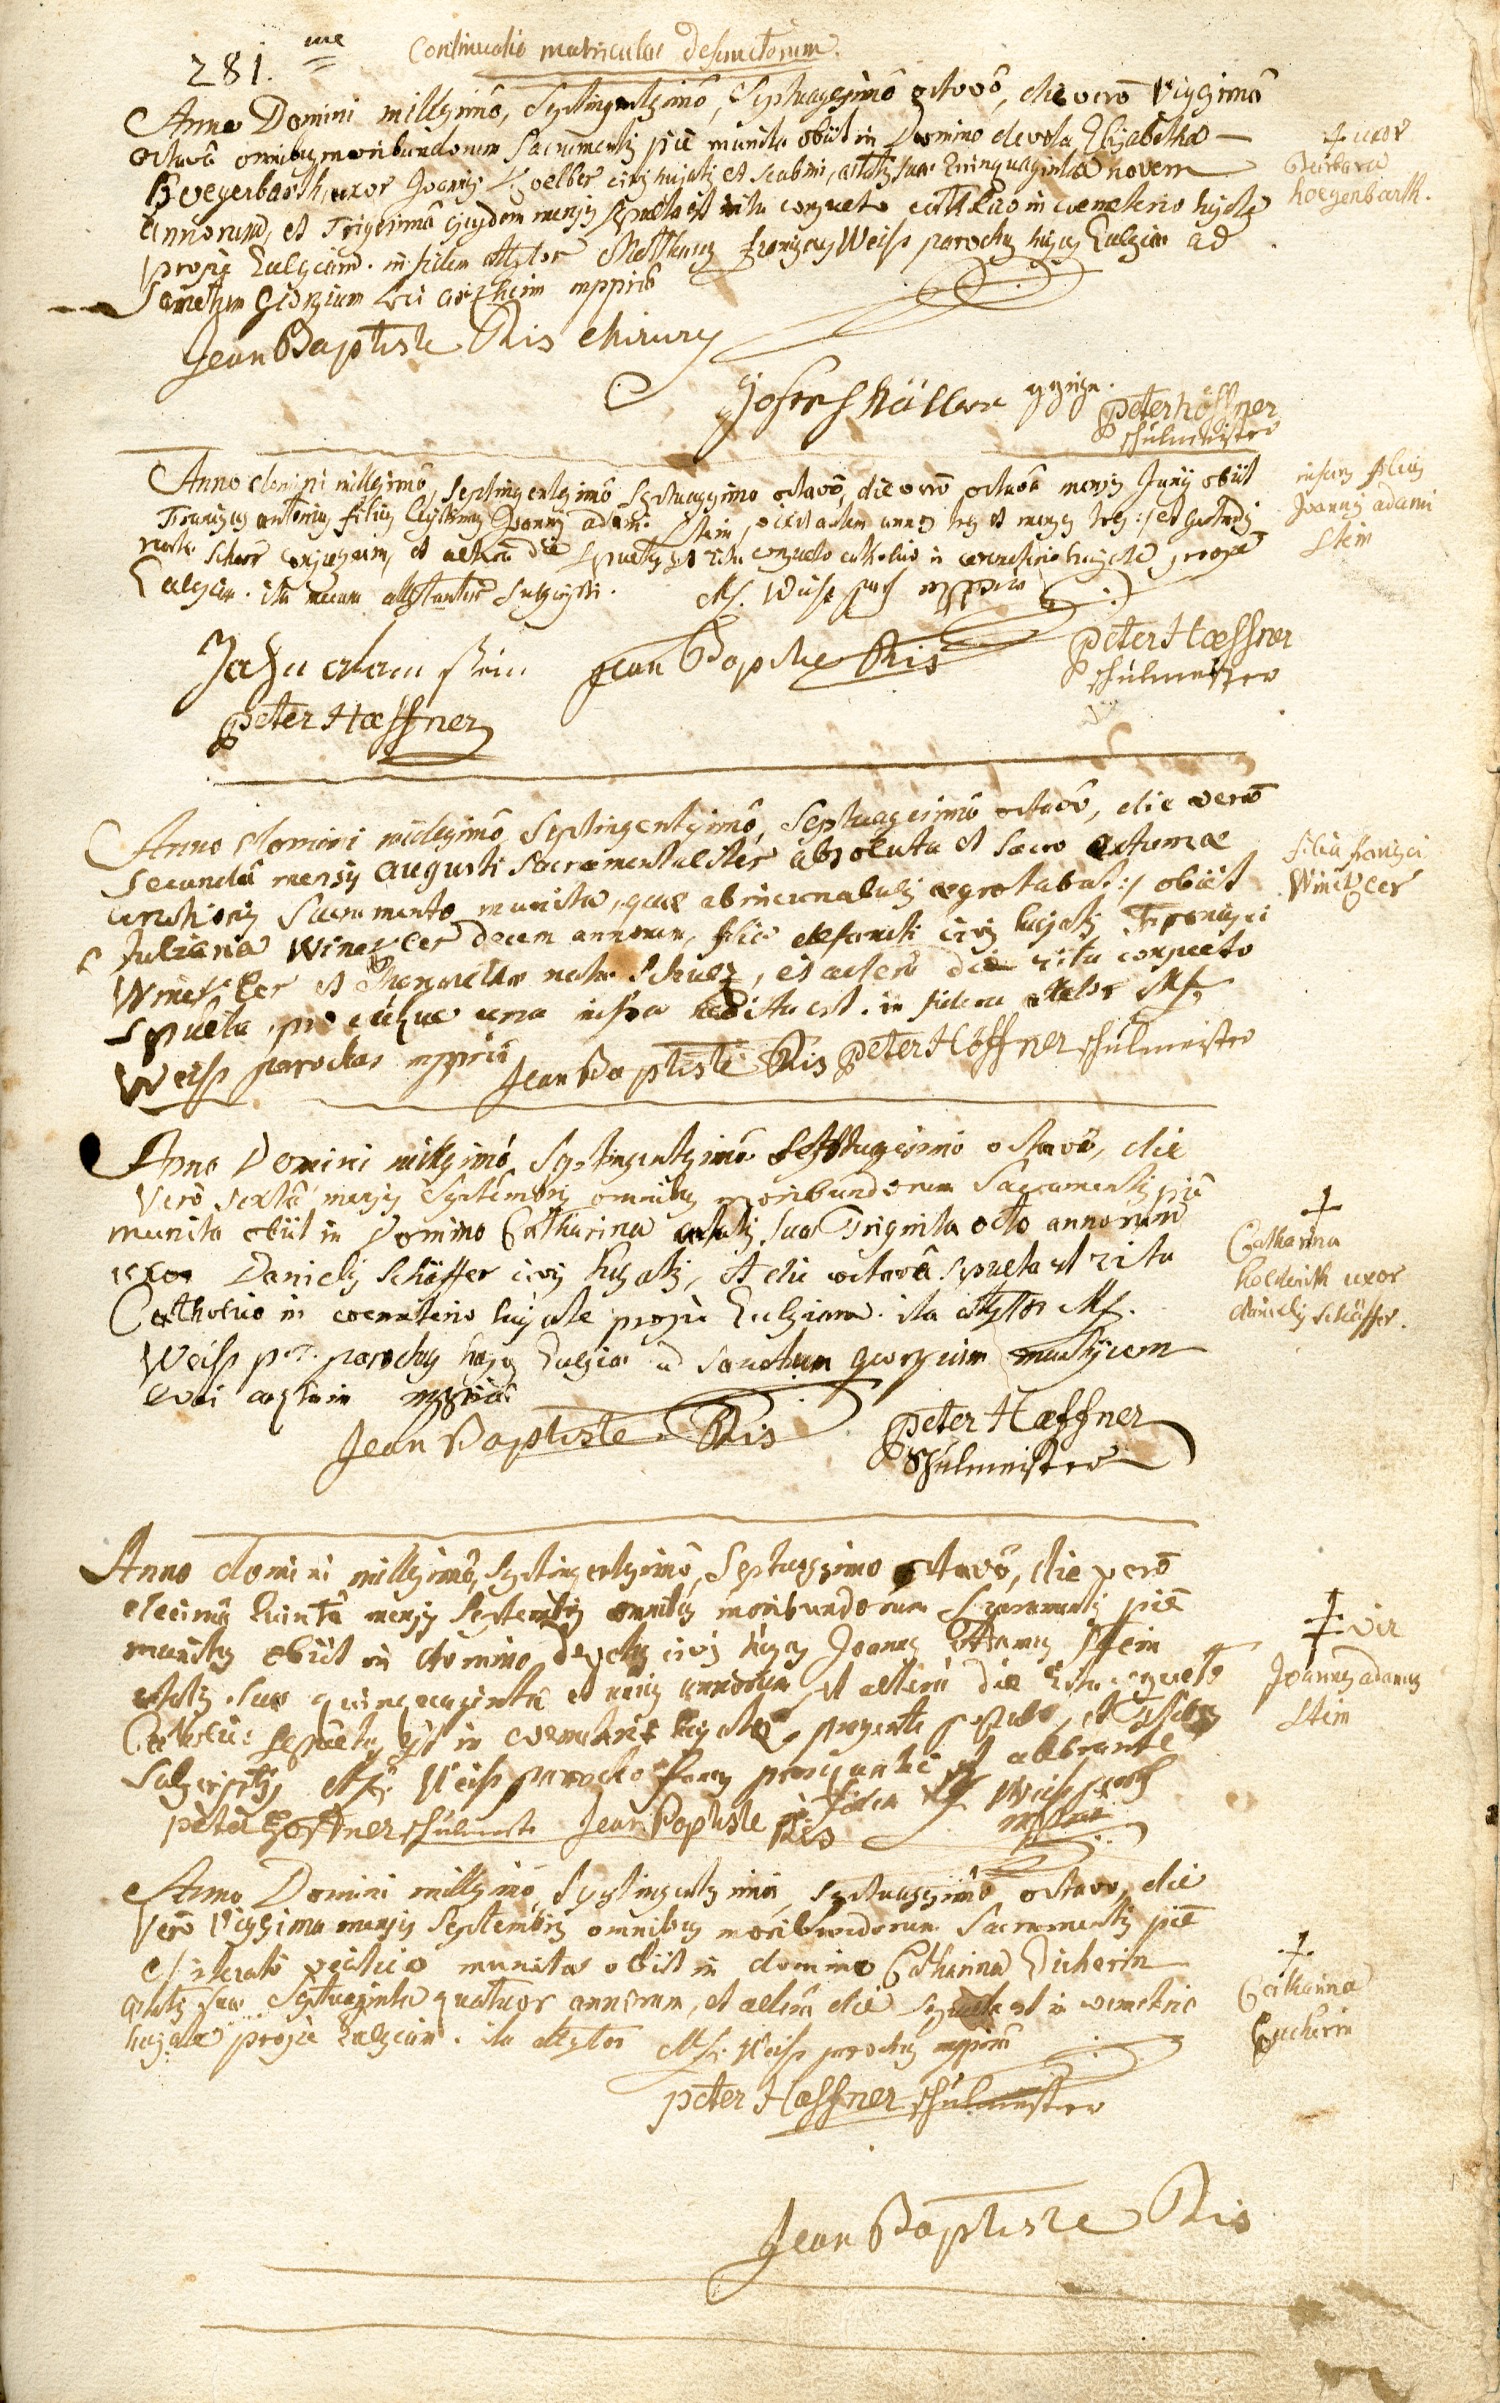 281. me Continuatio matriculae defunctorum.
Anno Domini millesimo, Septingentesimo, Septuagesimo octavo, die vero vigesima
octava omnibus moribundorum Sacramentis pie munita obiit in Domino devota Elisabetha
uxor Joannis civis hujatis et scabini, aetatis suae quinquaginta novem
annorum, et Trigesima ejusdem mensis sepulta est ritu consueto catholico in coemeterio hujate
prope Ecclesiam. in fidem attestor Matthaeus Franciscus Weiss parochus hujus Ecclesiae ad
Sanctum Georgium loci mppria
† uxor
Barbara
hoegenbarth.
Jean Baptiste Ris chirurg
Peter höffner
schulmeister
Anno domini millesimo, septingentesimo septuagesimo octavo, die vero octava mensis Junij obiit
Franciscus antonius filius legitimus Joannis adami Stein, vixit autem annos tres et menses tres
natae Scherr conjugum, et altera die sepultus est ritu consueto catholico in coemeterio hujate prope
Ecclesiam. ita mecum attestantur subscripti. Mf. Weiss par mppria
infans filius
Joannis adami
Stein
Johan adam stein Jean Baptiste Ris Peter Haeffner
schulmeister
Peter Haeffner
Anno domini millesimo Septingentesimo, Septuagesimo octavo, die vero
secunda mensis augusti sacramentaliter absoluta et sacro extremae
unctionis Sacramento munita, quae ab incunabulis aegrotabat :/ obiit
Juliana Winckler decem annorum, filia defuncti civis hujatis Francisci
Winckler et Margarethae natae Schulz, et altera die ritu consueto
sepulta, pro eaque una missa habita est. in fidem attestor Mf.
Weiss parochus mppria
filia francisci
Winckler
Jean Baptiste Ris Peter Höffner schulmeister
Anno Domini millesimo Septingentesimo septuagesimo octavo, die
vero sexta mensis Septembris omnibus moribundorum Sacramentis pie
munita obiit in Domino Catharina aetatis suae Triginta octo annorum
uxor Danielis Schäffer civis hujatis, et die octava sepulta est ritu
Catholico in coemeterio hujate prope Ecclesiam. ita attestor Mf.
Weiss p.t. parochus hujus Ecclesiae ad Sanctum Georgium martyrem
loci mppria
†
Catharina
uxor
danielis schäffer.
Jean Baptiste Ris Peter Haeffner
schulmeister
Anno domini millesimo, septingentesimo, septuagesimo octavo, die vero
decima quinta mensis septembris omnibus moribundorum Sacramentis pie
munitus obiit in domino devotus civis hujas Joannes Adamus Stein
aetatis suae quinquaginta et unius annorum, et altera die ritu consueto
Catholico sepultus est in coemeterio hujate, praesente populo, et testibus
subscriptis Mf. Weiss parocho
in fidem Mf Weiss paroch
mppria
† vir
Joannes adamus
Stein
Peter Höffner schulmeister Jean Baptiste Ris
Anno Domini millesimo, septingentesimo, septuagesimo octavo, die
vero vigesima mensis septembris omnibus moribundorum Sacramentis pie
et iterato viatico munita obiit in domino Catharina Eicherin
aetatis suae septuaginta quatuor annorum, et altera die sepulta est in coemeterio
hujate prope Ecclesiam. ita attestor Mf. Weiss parochus mppria
†
Catharina
Eicherin
Peter Haeffner schulmeister
Jean Baptiste Ris